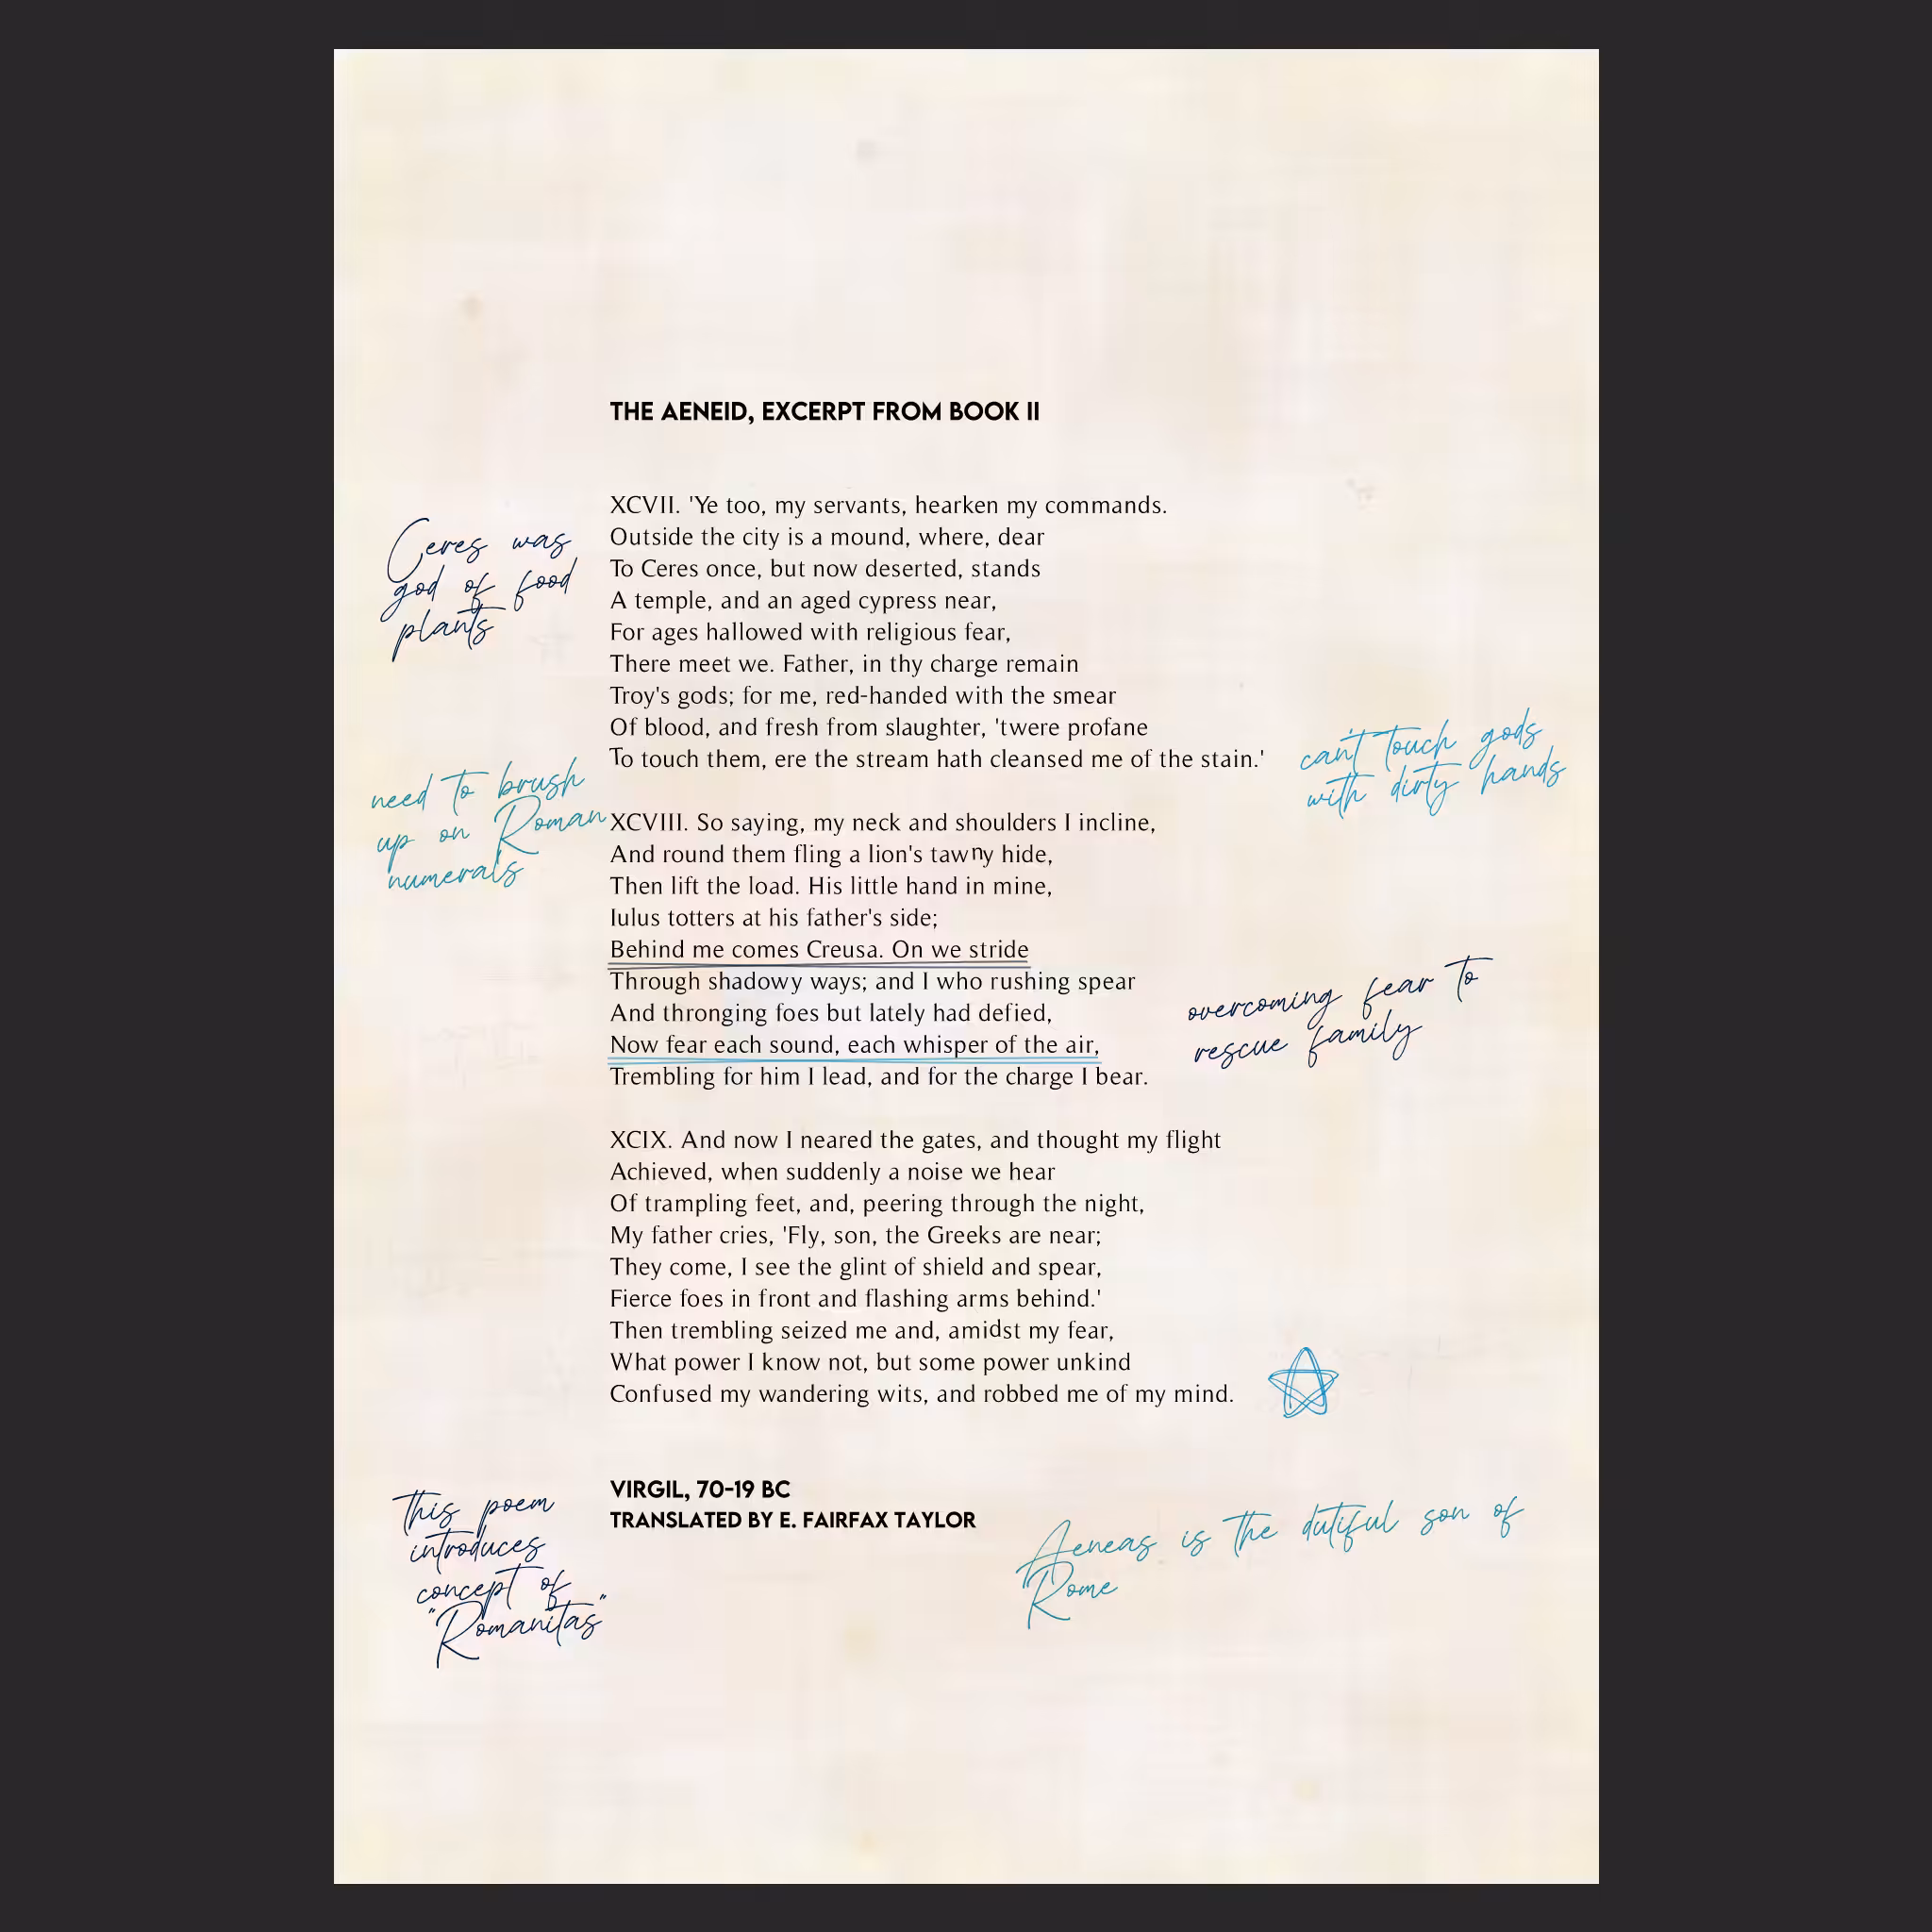 THE AENEID, EXCERPT FROM BOOK II
XCVII. 'Ye too, my servants, hearken my commands.
Outside the city is a mound, where, dear
To Ceres once, but now deserted, stands
A temple, and an aged cypress near,
For ages hallowed with religious fear,
There meet we. Father, in thy charge remain
Troy's gods; for me, red-handed with the smear
Of blood, and fresh from slaughter, 'twere profane
To touch them, ere the stream hath cleansed me of the stain.'
Ceres was
god of food
plants
can't touch gods
with dirty hands
need to brush
up on Roman
numerals
XCVIII. So saying, my neck and shoulders I incline,
And round them fling a lion's tawny hide,
Then lift the load. His little hand in mine,
Iulus totters at his father's side;
Behind me comes Creusa. On we stride
Through shadowy ways; and I who rushing spear
And thronging foes but lately had defied,
Now fear each sound, each whisper of the air,
Trembling for him I lead, and for the charge I bear.
overcoming fear to
rescue family
XCIX. And now I neared the gates, and thought my flight
Achieved, when suddenly a noise we hear
Of trampling feet, and, peering through the night,
My father cries, 'Fly, son, the Greeks are near;
They come, I see the glint of shield and spear,
Fierce foes in front and flashing arms behind.'
Then trembling seized me and, amidst my fear,
What power I know not, but some power unkind
Confused my wandering wits, and robbed me of my mind.
VIRGIL, 70-19 BC
TRANSLATED BY E. FAIRFAX TAYLOR
this poem
introduces
concept of
"Romanitas"
Aeneas is the dutiful son of
Rome